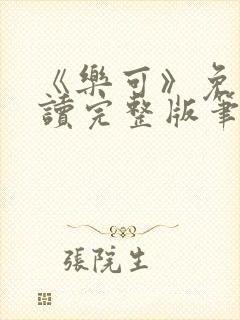 《樂可》免
讀完整版筆
張院生